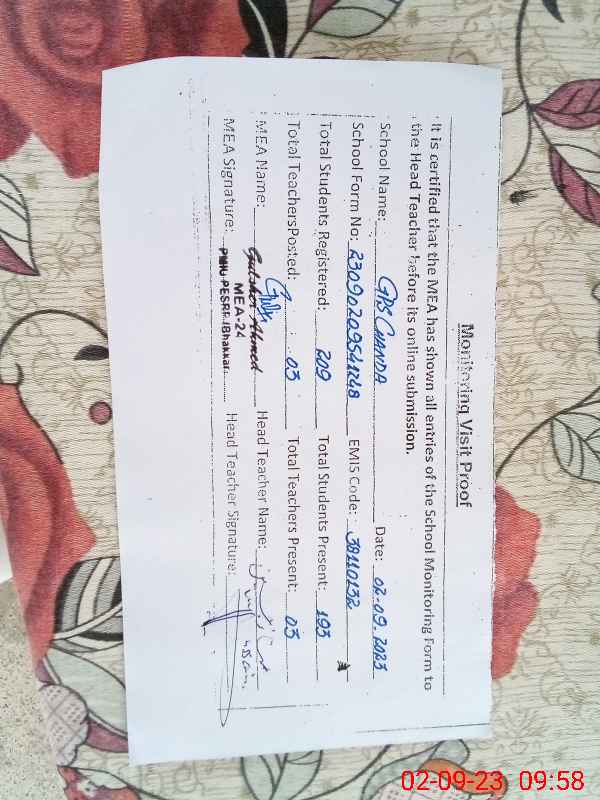 Monitoring Visit Proof
It is certified that the MEA has shown all entries of the School Monitoring Form to
the Head Teacher before its online submission.
School Name: GPS CHANDA Date: 02-09-2023
School Form No: 23090209541248 EMIS Code: 38110132
Total Students Registered: 209 Total Students Present: 193
Total TeachersPosted: 03 Total Teachers Present: 03
MEA Name: Gulsher Ahmed Head Teacher Name:
MEA-24
MEA Signature: PMIU-PESRP/Bhakkar Head Teacher Signature:
02-09-23 09:58